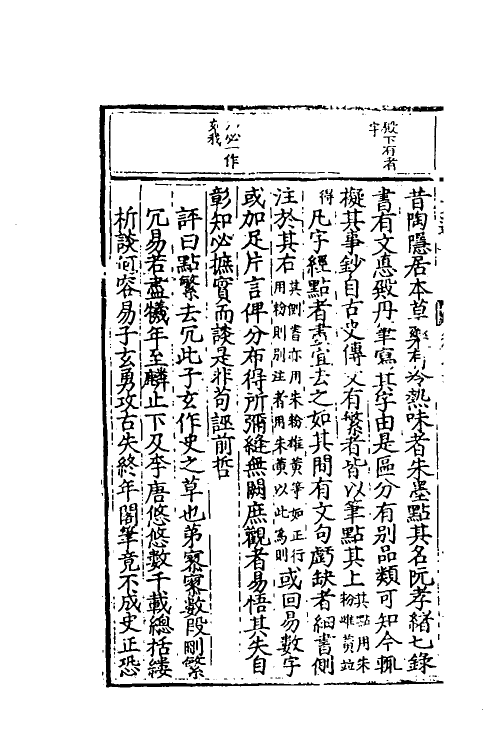 殿下有者
字
必一作
昔陶隱居本草藥有冷熱味者朱墨點其名阮孝緒七錄
書有文悳殿丹筆寫其字由是區分有别品類可知今輒
擬其事鈔自古史傳文有繁者皆以筆點其上其點用朱粉雌黄並
得凡字經點者盡宜去之如其間有文句虧缺者細書側
注於其右其側書亦用朱粉雌黄等如正行用粉則别注者用朱黄以此為則或回易數字
或加足片言俾分布得所彌縫無闕庶觀者易悟其失自
彰知必摭實而談是非苟誣前哲
評曰點繁去冗此子玄作史之草也第寥寥數段刪繁
冗易若盡犧年至麟止下及李唐悠悠數千載總括縷
析談何容易子玄勇攻古失終年閣筆竟不成史正恐